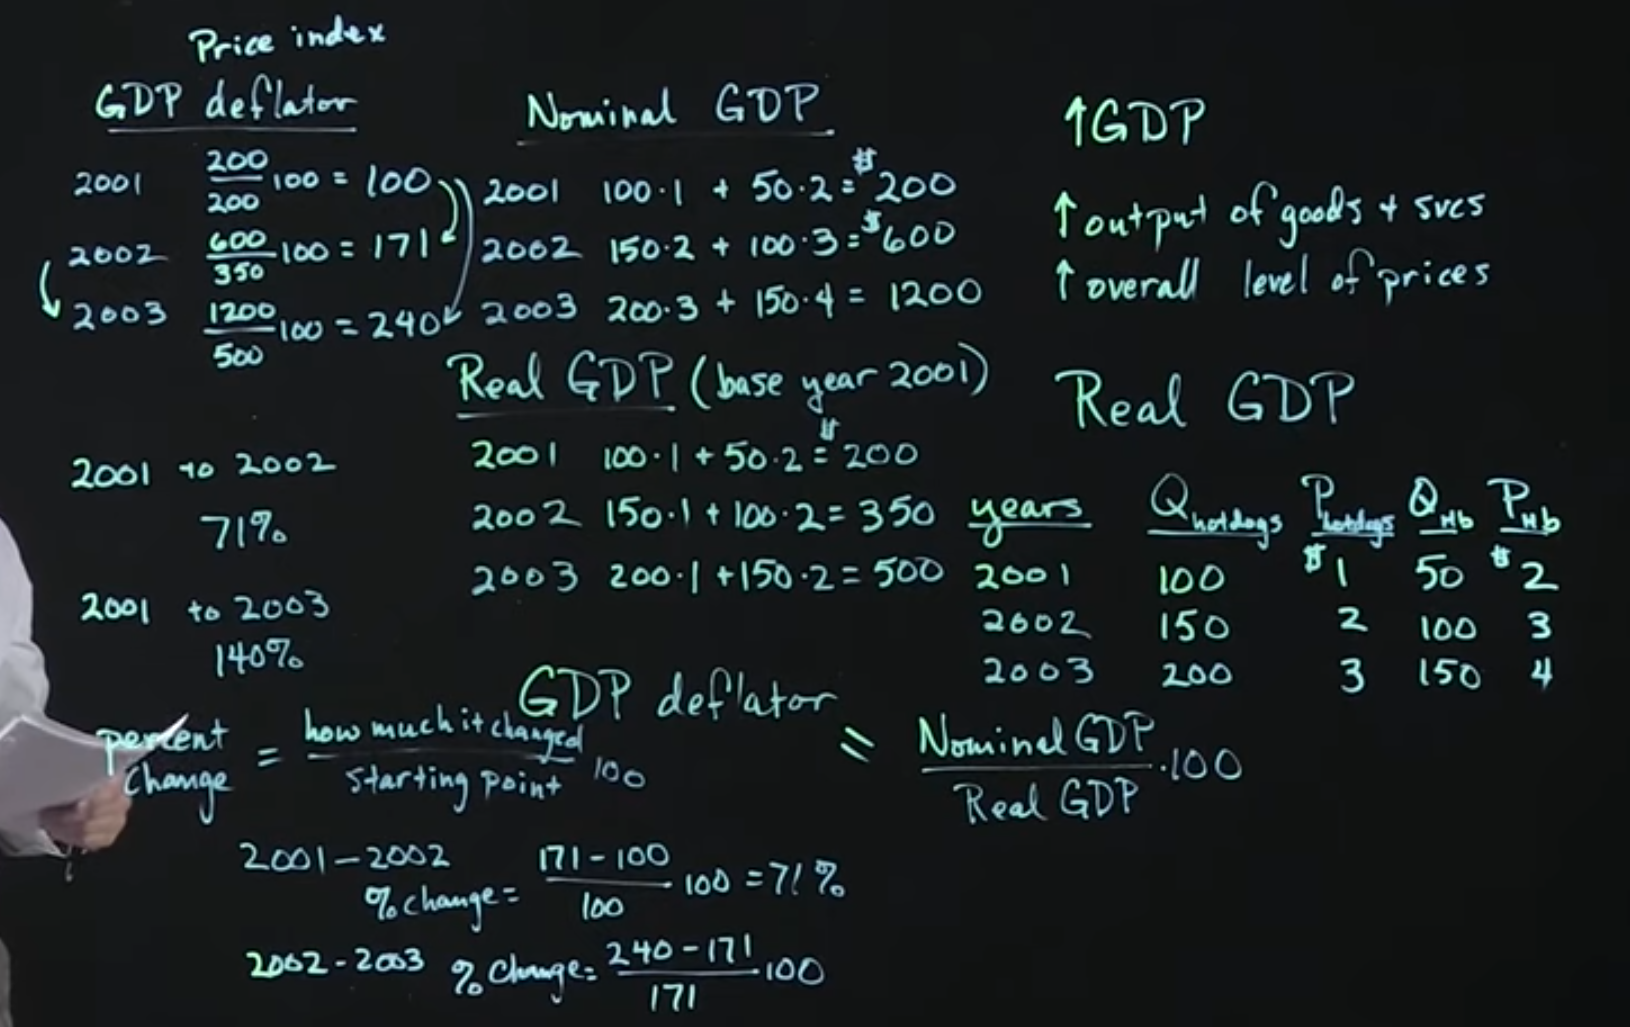 Price index
GDP deflator
2001 200/200 100 = 100
2002 600/350 100 = 171
2003 1200/500 100 = 240
2001 to 2002
71%
2001 to 2003
140%
Nominal GDP
2001 100·1 + 50·2 = $200
2002 150·2 + 100·3 = $600
2003 200·3 + 150·4 = 1200
Real GDP (base year 2001)
2001 100·1 + 50·2 = $200
2002 150·1 + 100·2 = 350
2003 200·1 + 150·2 = 500
↑GDP
↑ output of goods + svcs
↑ overall level of prices
Real GDP
years Qhotdogs Photdogs QHb PHb
2001 100 $1 50 $2
2002 150 2 100 3
2003 200 3 150 4
GDP deflator = Nominal GDP/Real GDP ·100
percent change = how much it changed/starting point 100
2001-2002
% change = 171-100/100 100 = 71%
2002-2003 % Change = 240-171/171 100